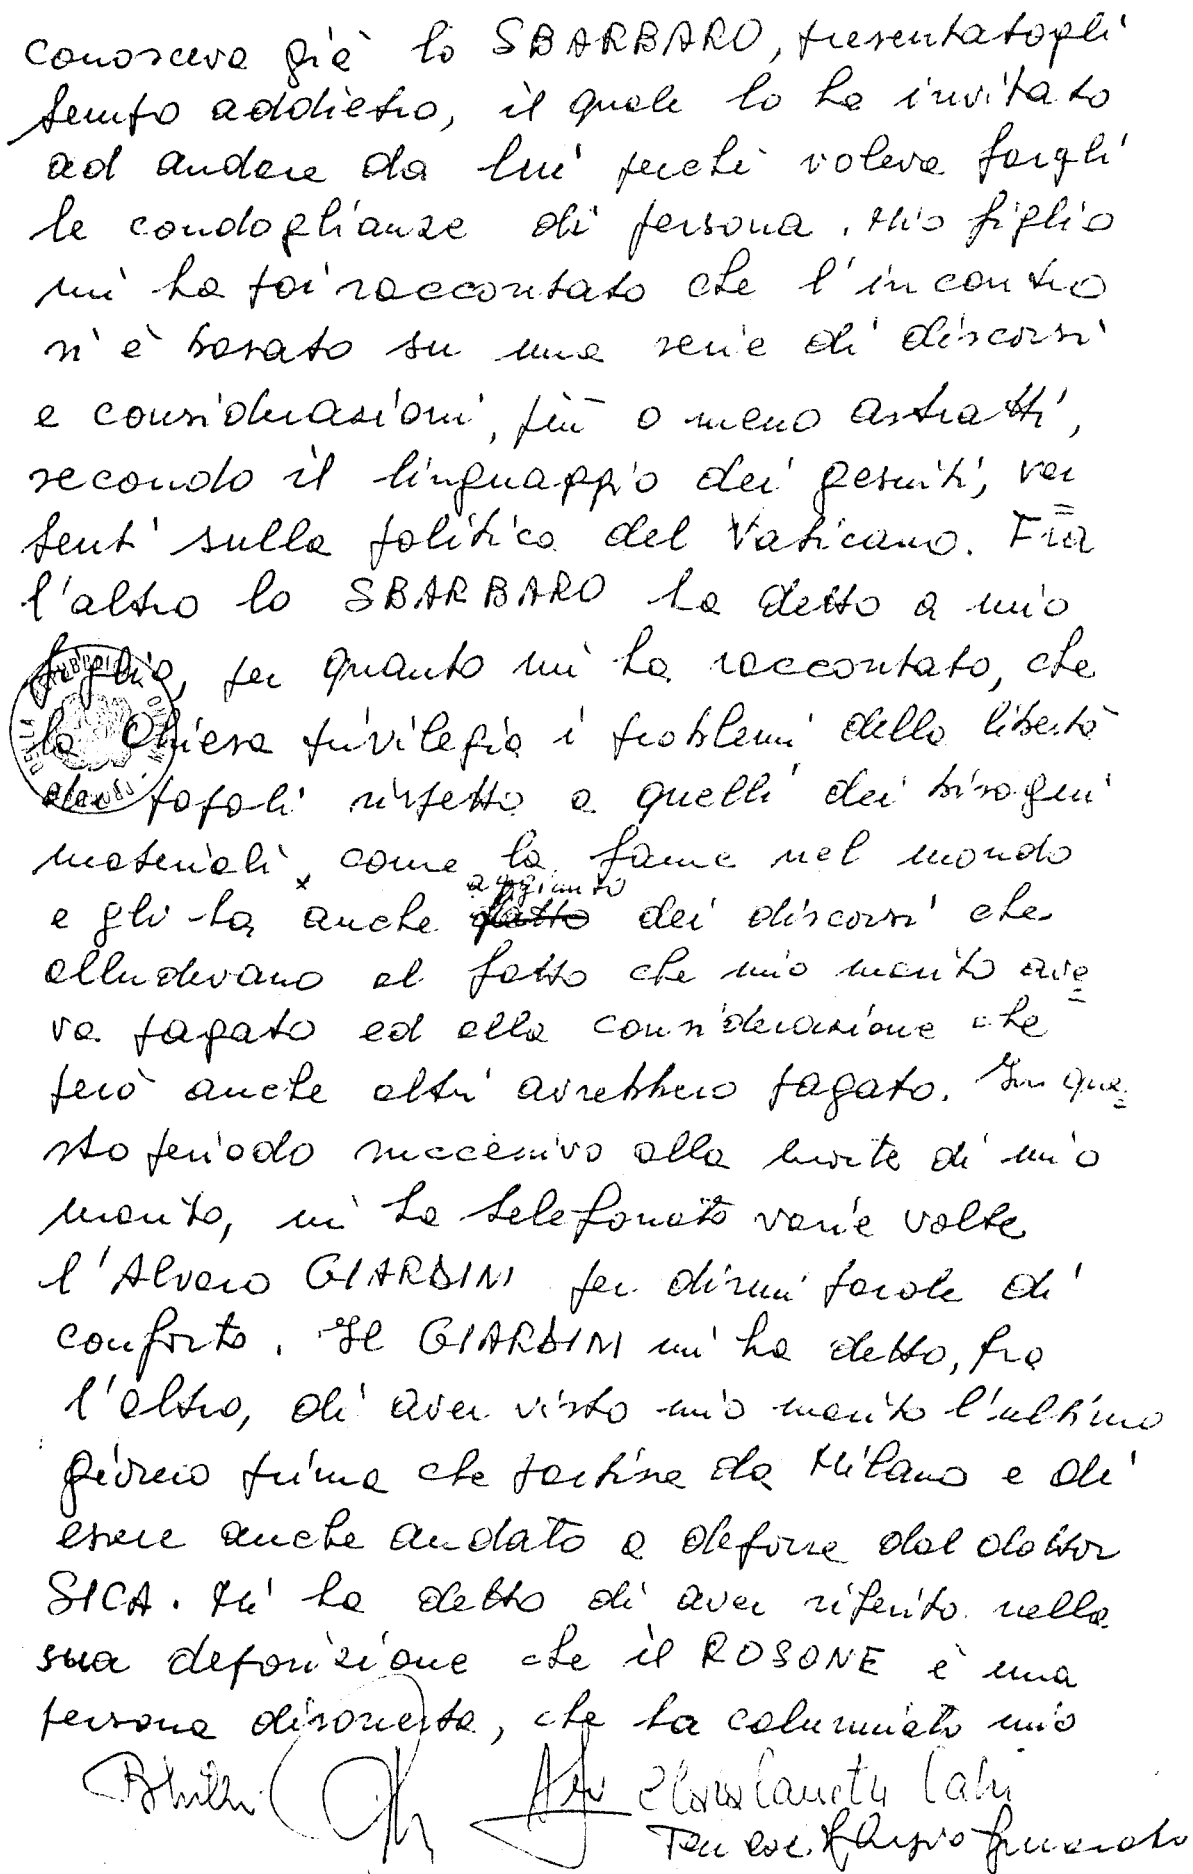 conosceva già lo SBARBARO, presentatogli
tempo addietro, il quale lo ha invitato
ad andare da lui perché voleva fargli
le condoglianze di persona. Mio figlio
mi ha poi raccontato che l'incontro
si è basato su una serie di discorsi
e considerazioni, più o meno astratti,
secondo il linguaggio dei gesuiti, ver=
tenti sulla politica del Vaticano. Fra
l'altro lo SBARBARO ha detto a mio
figlio, per quanto mi ha raccontato, che
la Chiesa privilegia i problemi della libertà
dei popoli rispetto a quelli dei bisogni
materiali, come la fame nel mondo
aggiunto
e gli ha anche fatto dei discorsi che
alludevano al fatto che mio marito ave=
va pagato ed alla considerazione che
però anche altri avrebbero pagato. In que=
sto periodo successivo alla morte di mio
marito, mi ha telefonato varie volte
l'Alvaro GIARDINI per dirmi parole di
conforto. Il GIARDINI mi ha detto, fra
l'altro, di aver visto mio marito l'ultimo
giorno prima che partisse da Milano e di
essere anche andato a deporre dal dottor
SICA. Mi ha detto di aver riferito nella
sua deposizione che il ROSONE è una
persona disonesta, che ha calunniato mio
Clara Canetti Calvi
Ten. col.